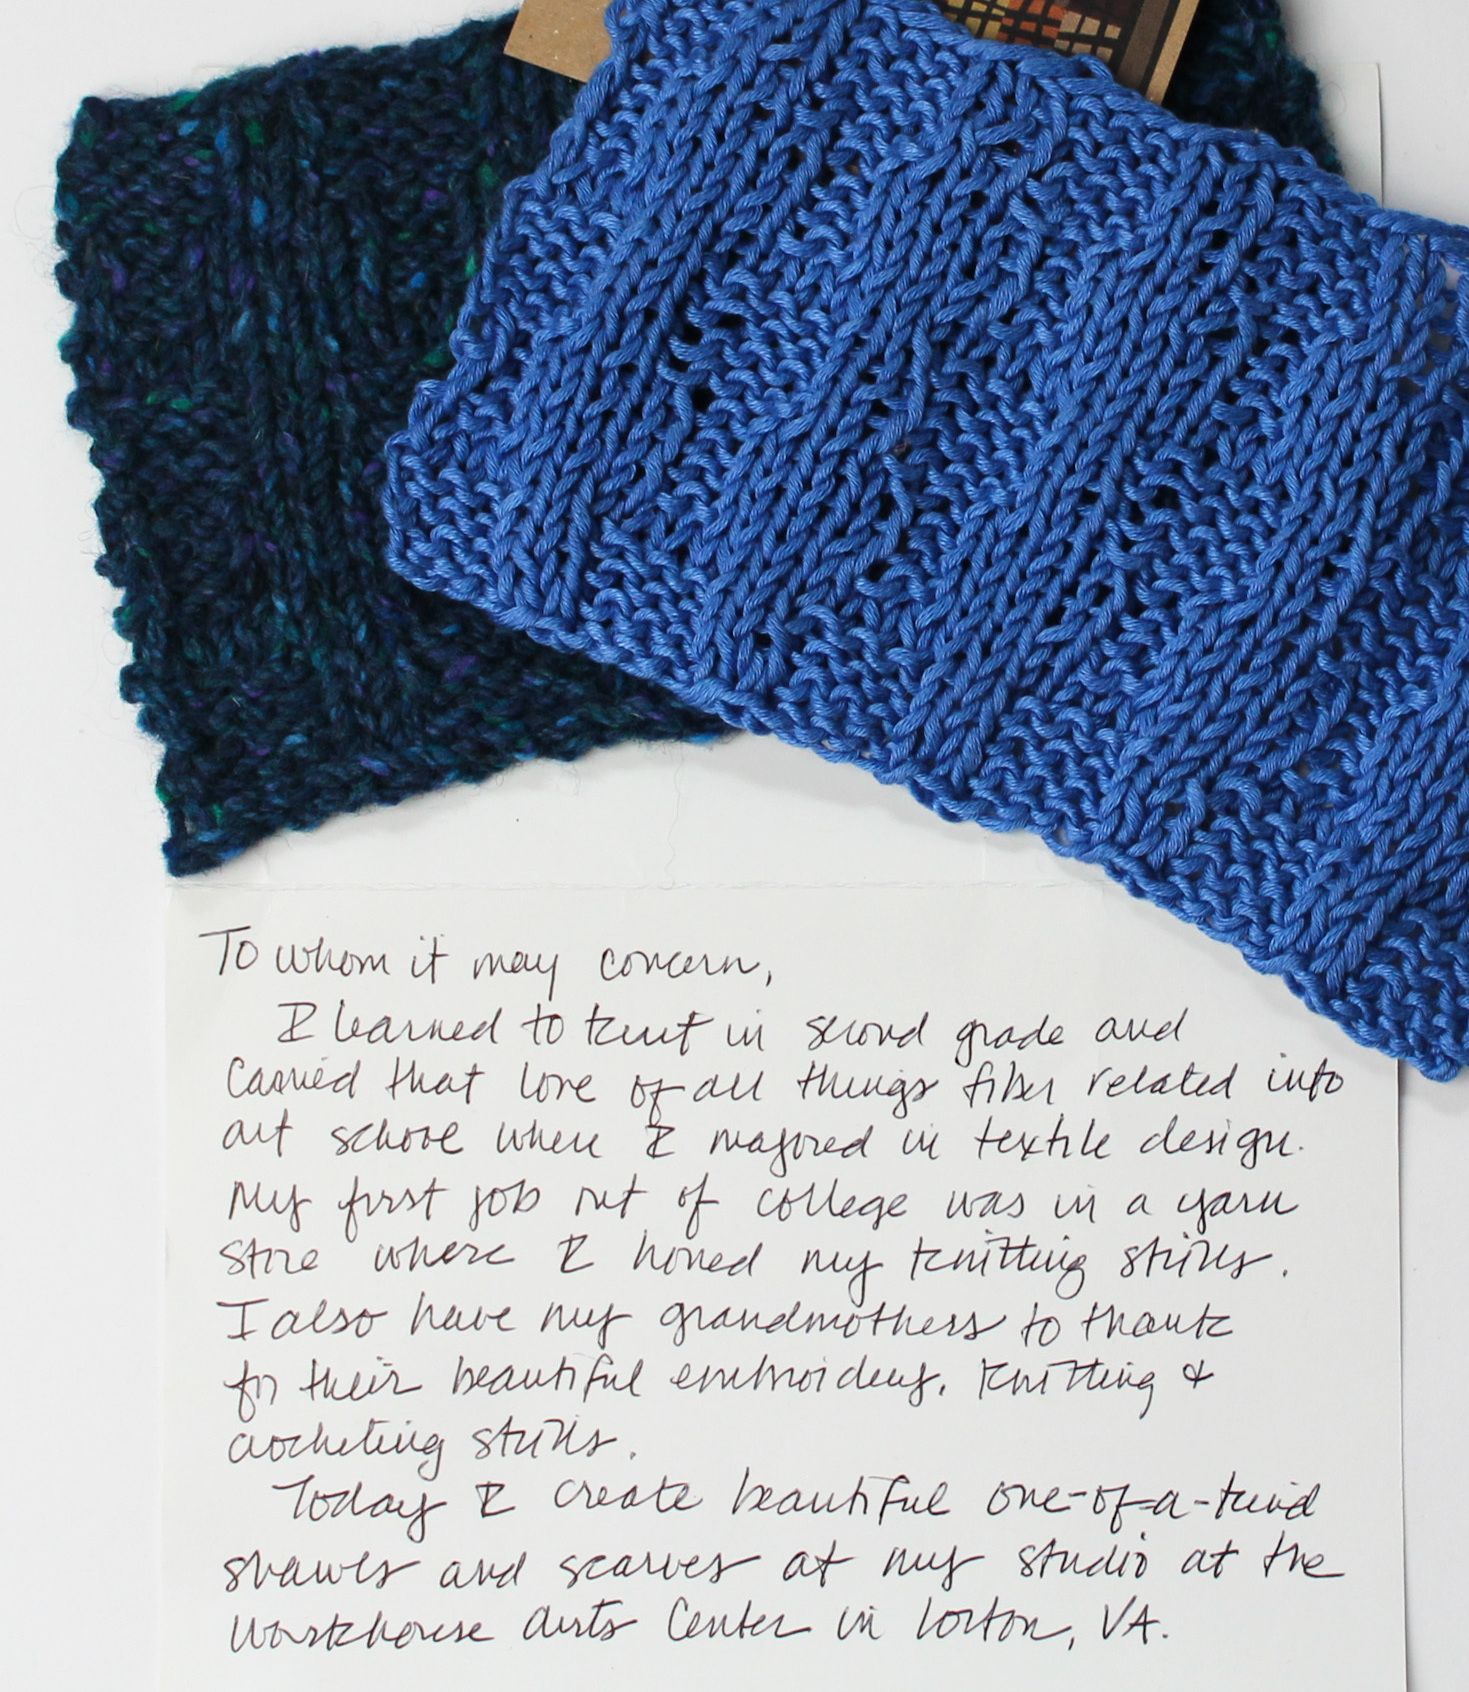 To whom it may concern,
I learned to knit in second grade and
carried that love of all things fiber related into
art school where I majored in textile design.
My first job out of college was in a yarn
store where I honed my knitting skills.
I also have my grandmothers to thank
for their beautiful embroidery, knitting &
crocheting skills.
Today I create beautiful one-of-a-kind
shawls and scarves at my studio at the
Workhouse Arts Center in Lorton, VA.